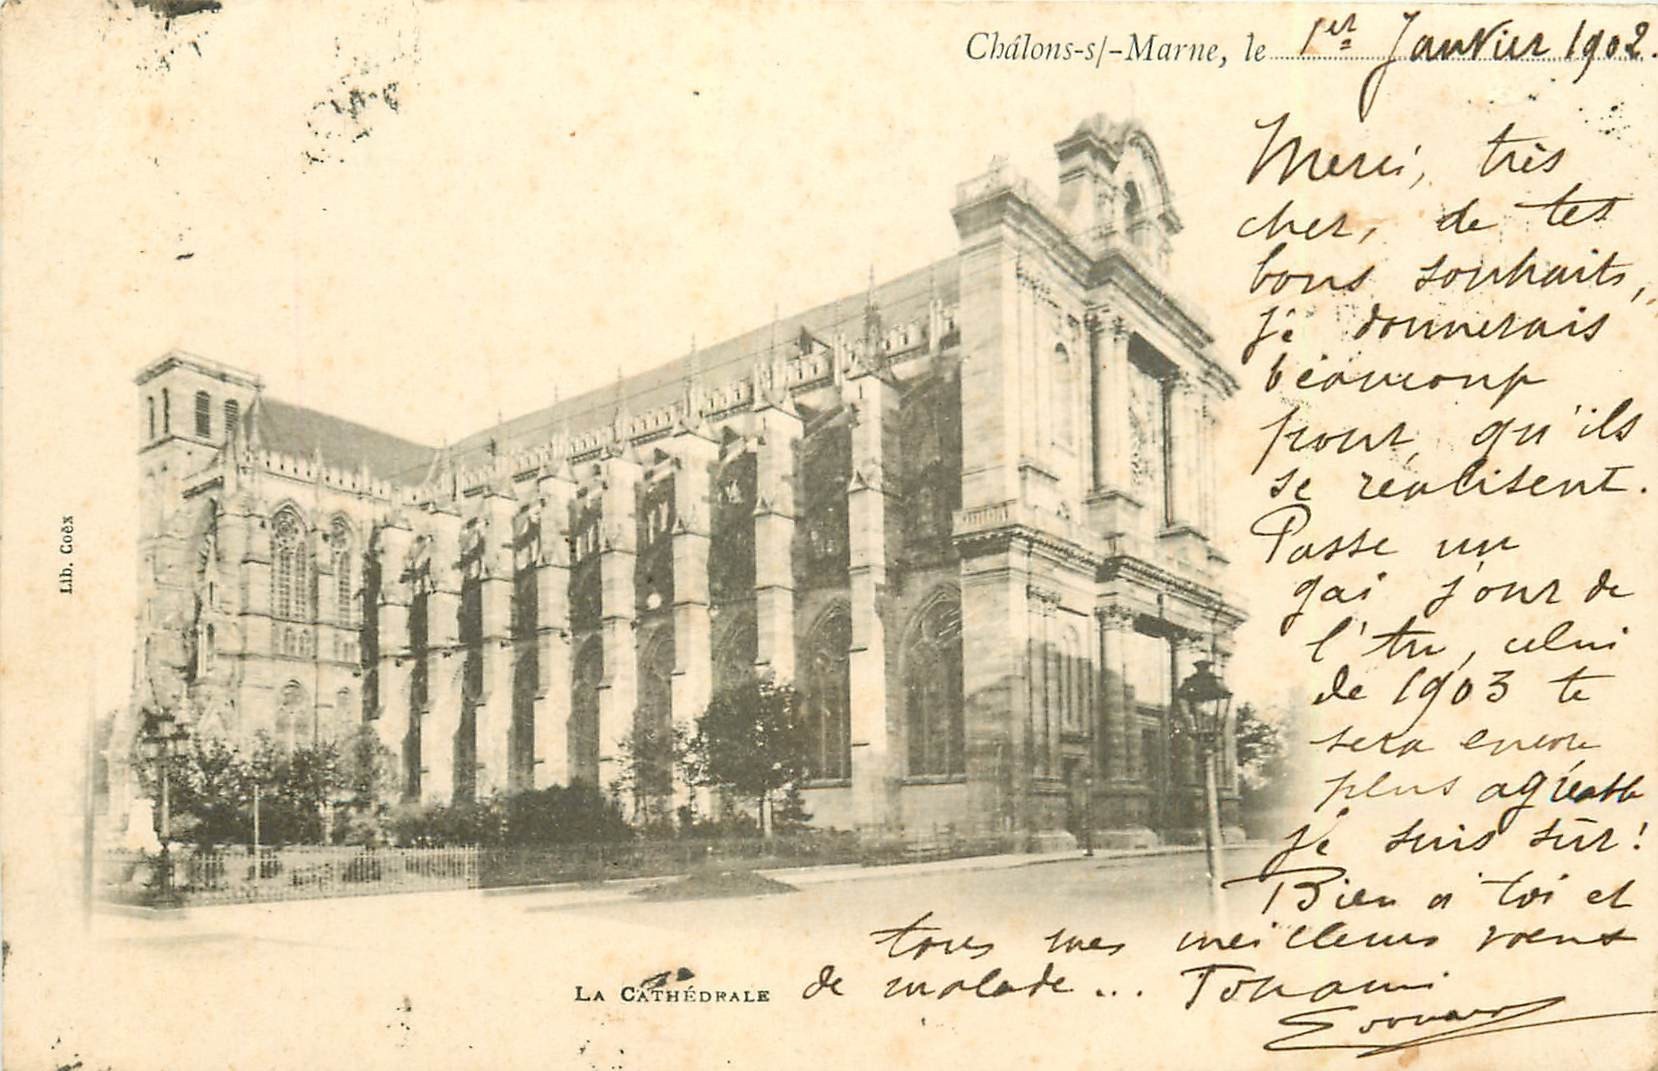 Châlons-s/-Marne, le 1er Janvier 1902.
Merci, très
cher, de tes
bons souhaits,
je donnerais
beaucoup
pour, qu'ils
se réalisent.
Passe un
gai jour de
l', celui
de 1903 te
sera encore
plus agréable
je suis sûr!
Bien à toi et
tous mes meilleurs voeux
de malade...
Edouard
LA CATHÉDRALE
Lib. Coëx